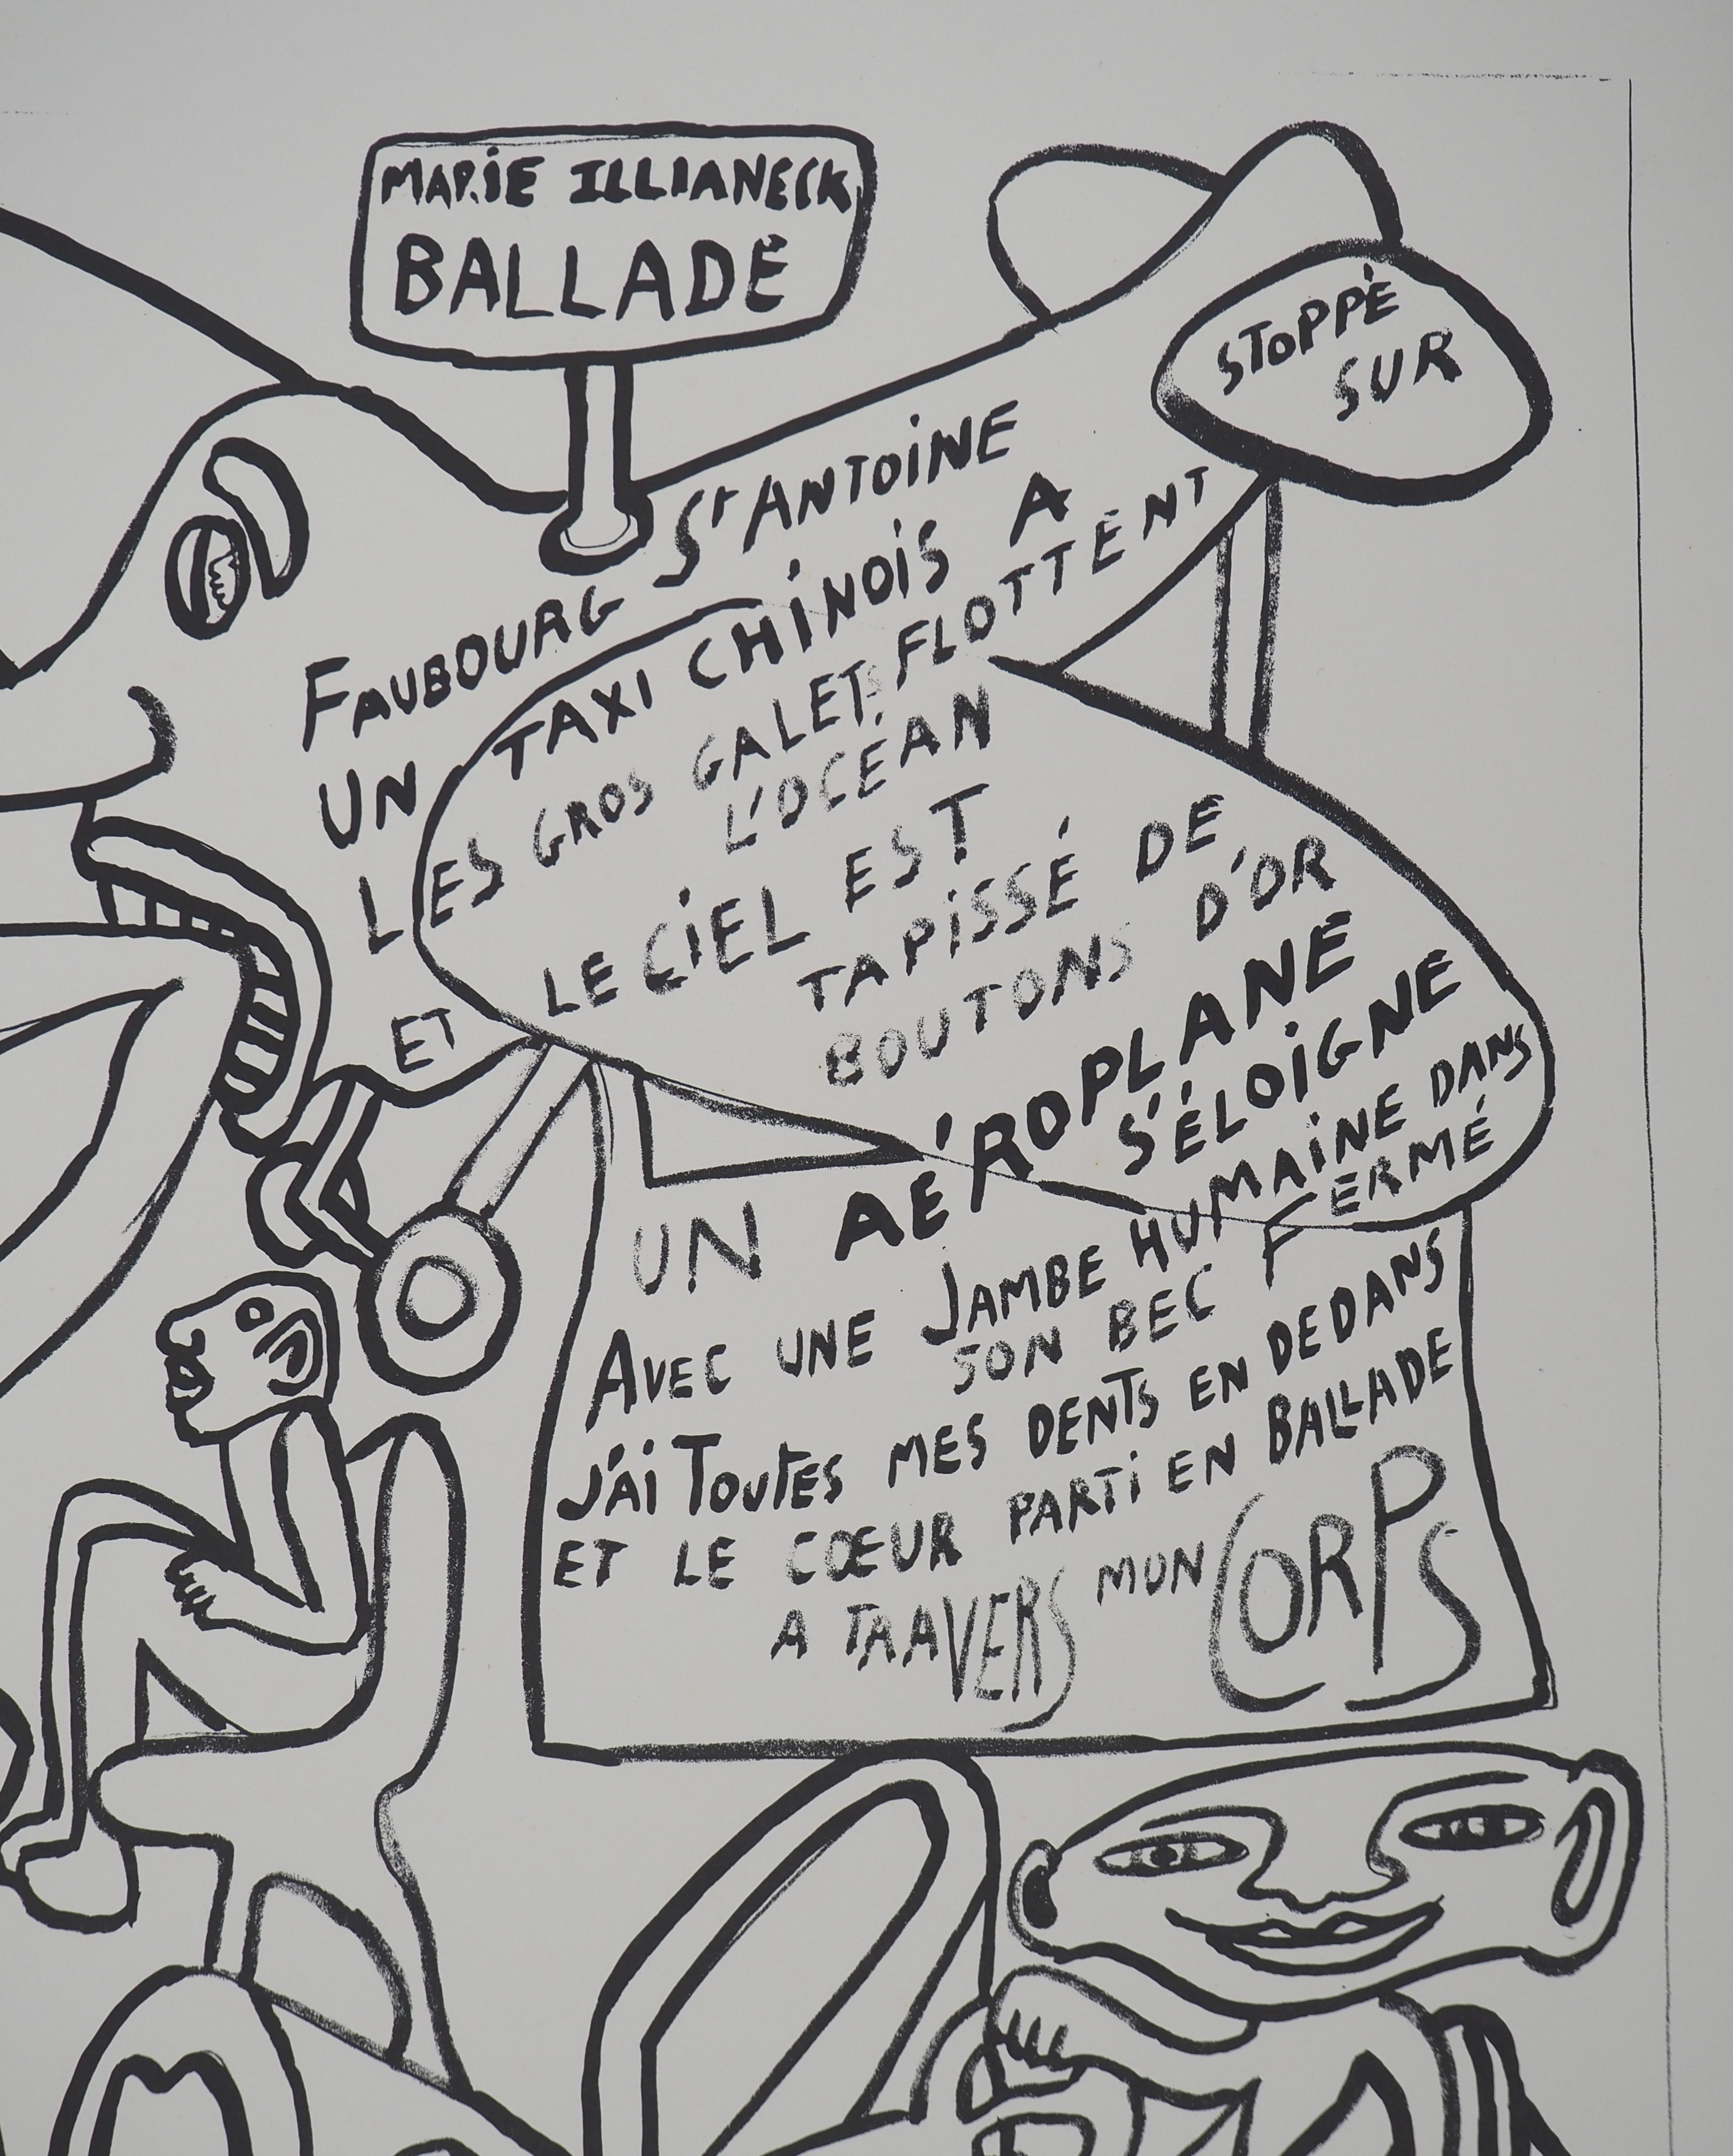 MARIE ILLIANECK
BALLADE
FAUBOURG St ANTOINE
UN TAXI CHINOIS A
STOPPÉ
SUR
LES GROS GALETS FLOTTENT
L'OCÉAN
ET LE CIEL EST
TAPISSÉ DE
BOUTONS D'OR
UN AÉROPLANE
S'ÉLOIGNE
AVEC UNE JAMBE HUMAINE DANS
SON BEC FERMÉ
J'AI TOUTES MES DENTS EN DEDANS
ET LE CŒUR PARTI EN BALLADE
A TRAVERS MON CORPS